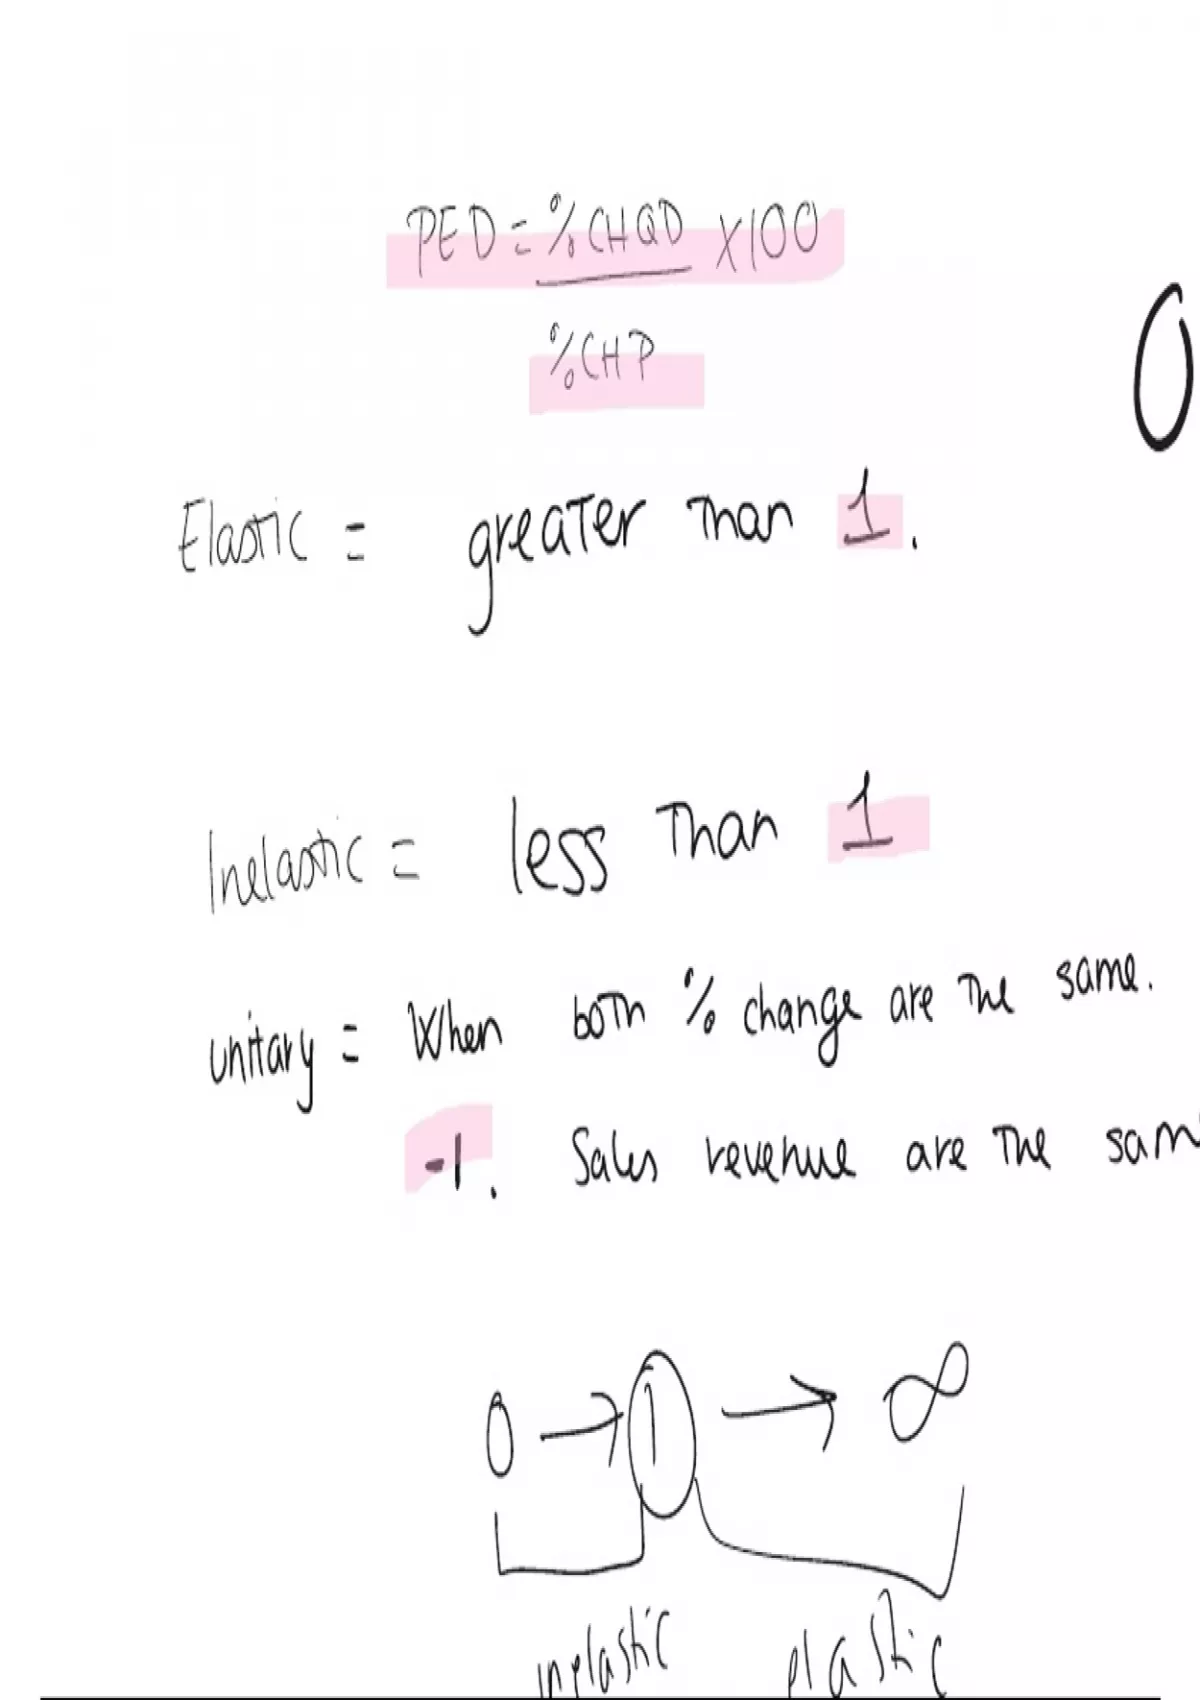 PED = %CHQD X100
%CHP
0
Elastic = greater than 1.
Inelastic = less than 1
unitary = When both % change are the same.
-1. Sales revenue are the sam
0 → 1 → ∞
inelastic elastic